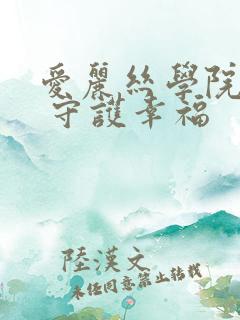 愛麗絲學院
守護幸福
陸漢文
未經同意禁止轉載